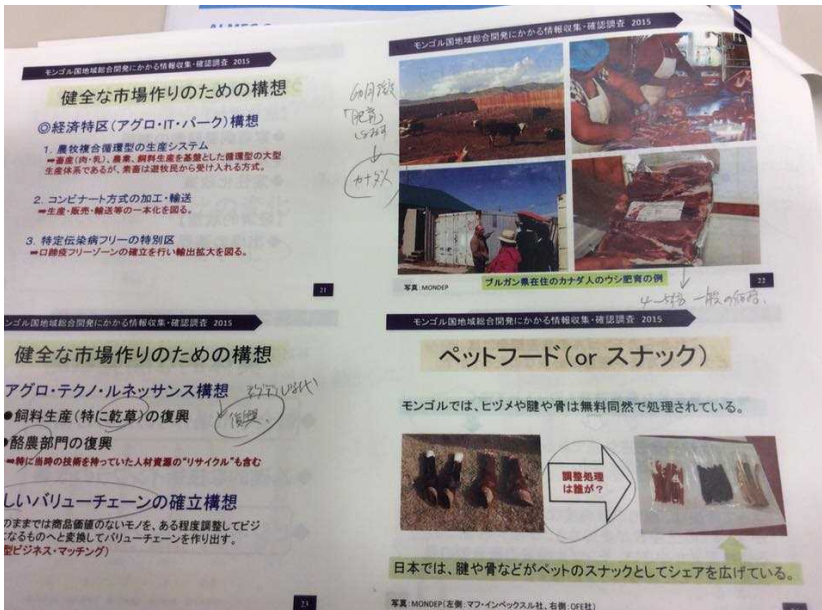 モンゴル国地域総合開発にかかる情報収集・確認調査 2015
健全な市場作りのための構想
◎経済特区（アグロ・IT・パーク）構想
1. 農牧複合循環型の生産システム
➡畜産（肉・乳）、農業、飼料生産を基盤とした循環型の大型
生産体系であるが、素畜は遊牧民から受け入れる方式。
2. コンビナート方式の加工・輸送
➡生産・販売・輸送等の一本化を図る。
3. 特定伝染病フリーの特別区
➡口蹄疫フリーゾーンの確立を行い輸出拡大を図る。
21
モンゴル国地域総合開発にかかる情報収集・確認調査 2015
「肥育」
カナダ人
写真：MONDEP
ブルガン県在住のカナダ人のウシ肥育の例
22
4〜5倍 一般の価格、
ンゴル国地域総合開発にかかる情報収集・確認調査 2015
健全な市場作りのための構想
アグロ・テクノ・ルネッサンス構想
●飼料生産（特に乾草）の復興
復興
●酪農部門の復興
➡特に当時の技術を持っていた人材資源の“リサイクル”も含む
しいバリューチェーンの確立構想
のままでは商品価値のないモノを、ある程度調整してビジ
になるものへと変換してバリューチェーンを作り出す。
型ビジネス・マッチング）
23
モンゴル国地域総合開発にかかる情報収集・確認調査 2015
ペットフード（or スナック）
モンゴルでは、ヒヅメや腱や骨は無料同然で処理されている。
調整処理
は誰が？
日本では、腱や骨などがペットのスナックとしてシェアを広げている。
写真：MONDEP（左側：マフ・インペックスル社、右側：OFE社）